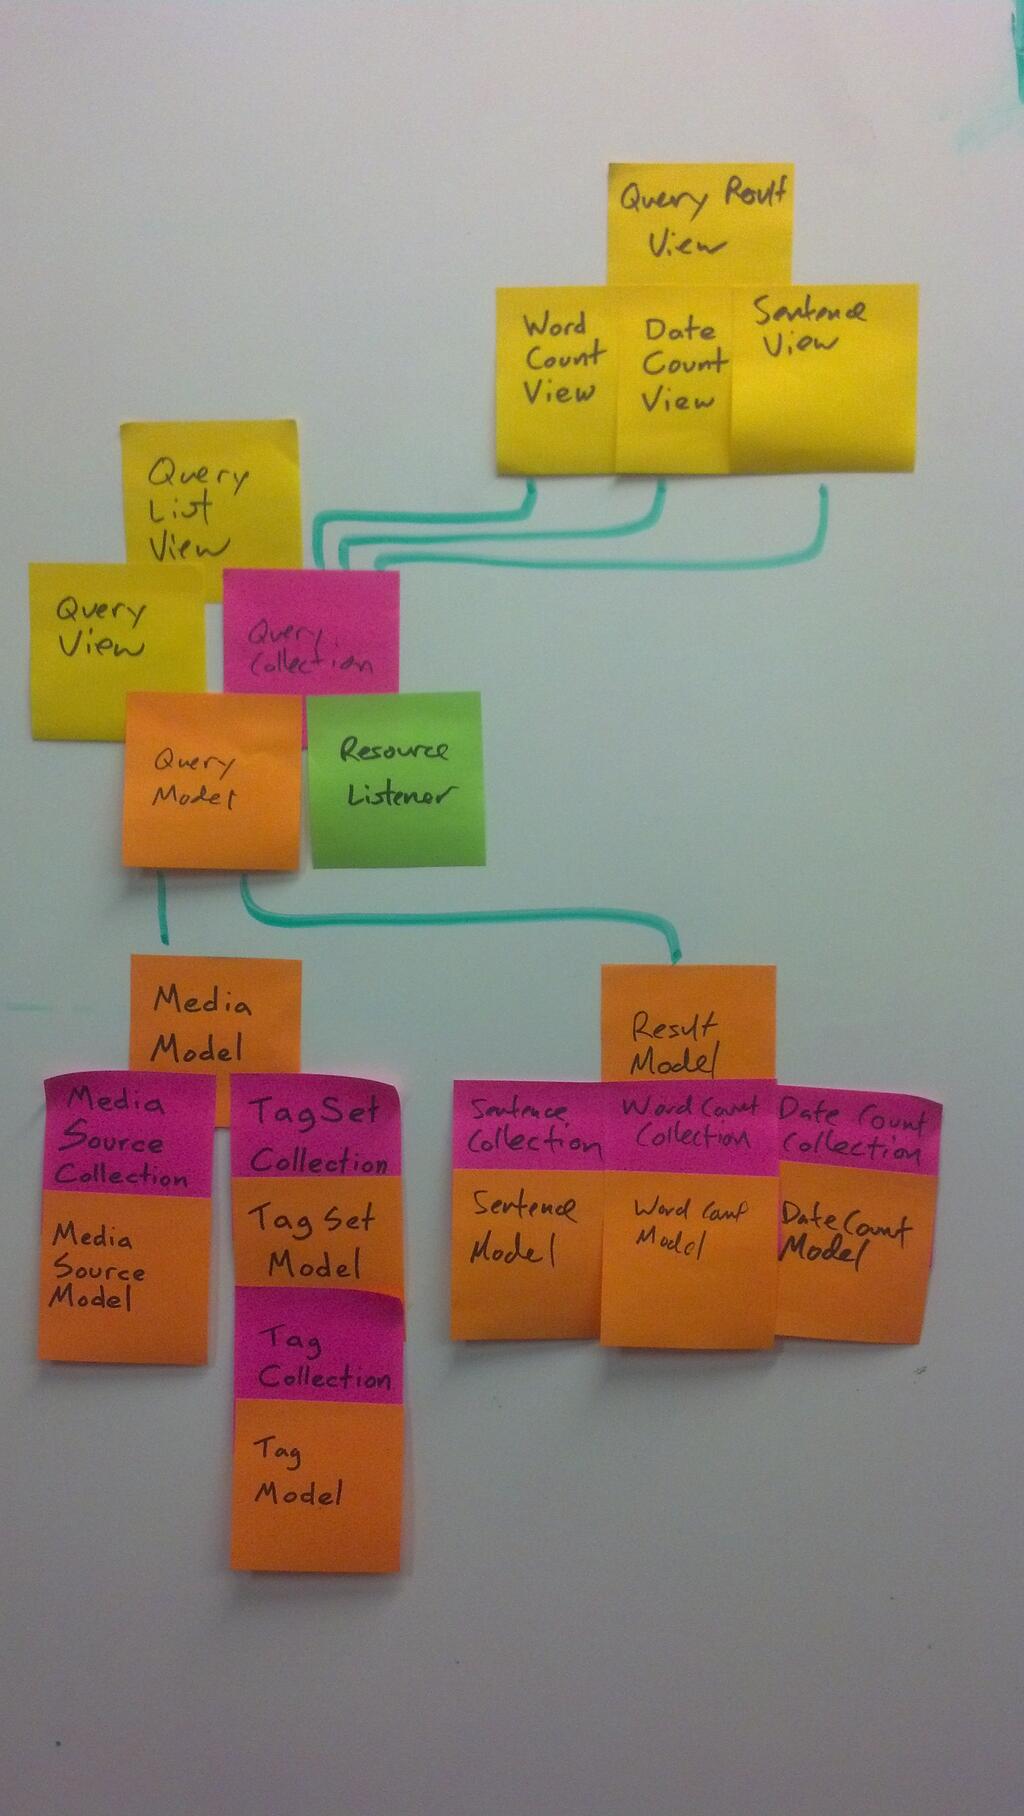 Query Result
View
Word
Count
View
Date
Count
View
Sentence
View
Query
List
View
Query
View
Query
Collection
Query
Model
Resource
Listener
Media
Model
Media
Source
Collection
Media
Source
Model
TagSet
Collection
Tag Set
Model
Tag
Collection
Tag
Model
Result
Model
Sentence
Collection
Word Count
Collection
Date Count
Collection
Sentence
Model
Word Count
Model
Date Count
Model